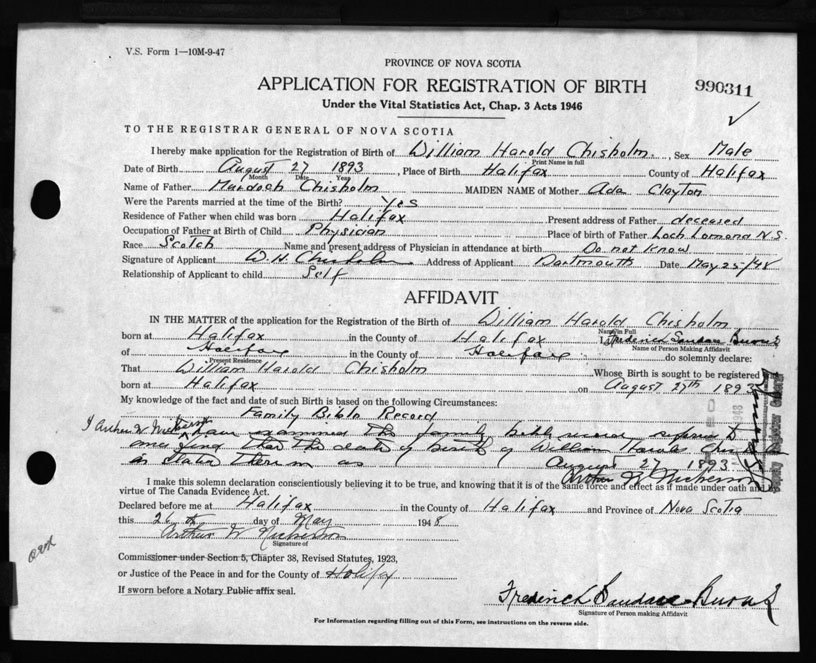 V.S. Form 1—10M-9-47
PROVINCE OF NOVA SCOTIA
APPLICATION FOR REGISTRATION OF BIRTH
990311
Under the Vital Statistics Act, Chap. 3 Acts 1946
TO THE REGISTRAR GENERAL OF NOVA SCOTIA
I hereby make application for the Registration of Birth of William Harold Chisholm, Sex Male
Print Name in full
Date of Birth August 27 1893, Place of Birth Halifax County of Halifax
Month Date Year
Name of Father Murdoch Chisholm MAIDEN NAME of Mother Ada Clayton
Were the Parents married at the time of the Birth? Yes
Residence of Father when child was born Halifax Present address of Father deceased
Occupation of Father at Birth of Child Physician Place of birth of Father Loch Lomond N.S.
Race Scotch Name and present address of Physician in attendance at birth Do not Know
Signature of Applicant W.H. Chisholm Address of Applicant Dartmouth Date May 25/48
Relationship of Applicant to child Self
AFFIDAVIT
IN THE MATTER of the application for the Registration of the Birth of William Harold Chisholm
Name in Full
born at Halifax in the County of Halifax I, Frederick
Name of Person Making Affidavit
of Halifax in the County of Halifax do solemnly declare:
Present Residence
That William Harold Chisholm Whose Birth is sought to be registered was
born at Halifax on August 27th 1893
My knowledge of the fact and date of such Birth is based on the following Circumstances:
Family Bible Record
I Arthur W Nickerson have examined the family bible record
and find that the date of birth of William Harold
is stated therein as August 27 1893
Arthur W Nickerson
I make this solemn declaration conscientiously believing it to be true, and knowing that it is of the same force and effect as if made under oath and by
virtue of The Canada Evidence Act.
Declared before me at Halifax in the County of Halifax and Province of Nova Scotia
this 26th day of May 1948
Arthur W Nickerson
Signature of
Commissioner under Section 5, Chapter 38, Revised Statutes, 1923,
or Justice of the Peace in and for the County of Halifax
If sworn before a Notary Public affix seal.
Frederick
Signature of Person making Affidavit
For Information regarding filling out of this Form, see instructions on the reverse side.
Deputy Registrar General